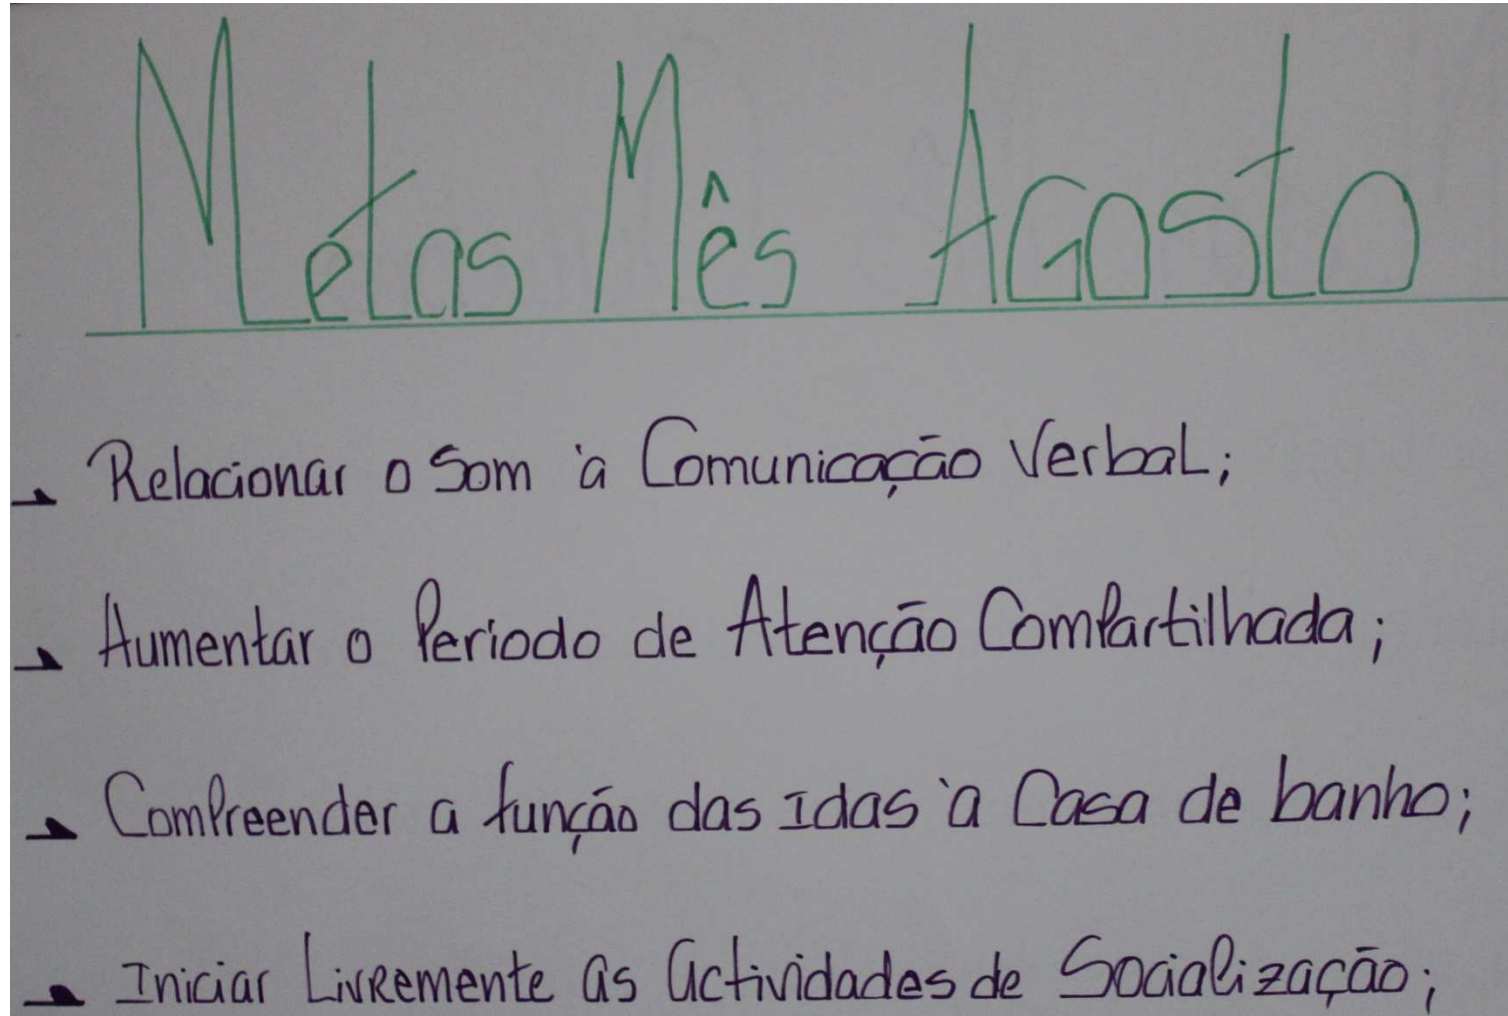 Metas Mês Agosto
Relacionar o Som à Comunicação Verbal;
Aumentar o Período de Atenção Compartilhada;
Compreender a função das Idas à Casa de banho;
Iniciar Livremente as actividades de Socialização;